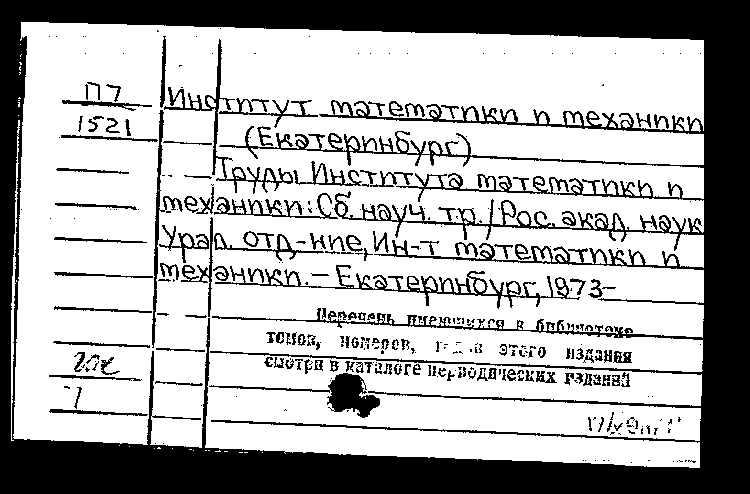 П7
1521
Институт математики и механики
(Екатеринбург)
Труды Института математики и
механики: Сб. науч. тр./Рос. акад. наук
Урал. отд-ние, Ин-т математики и
механики. – Екатеринбург, 1973–
Перечень имеющихся в библиотеке
томов, номеров, этого издания
смотри в каталоге периодических изданий